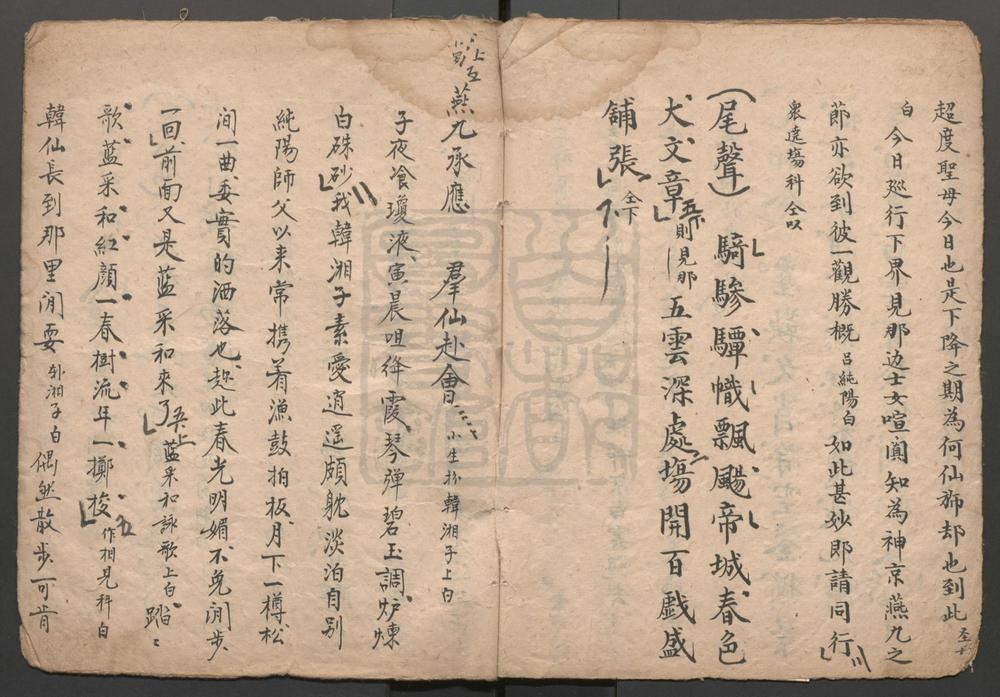 超度聖母今日也是下降之期為何仙姑却也到此
白今日廵行下界見那边士女喧闐知為神京燕九之
節亦欲到彼一觀勝概呂純陽白如此甚妙即請同行
衆遶塲科仝以
(尾聲)騎驂驔幟飄颺帝城春色
大文章則見那五雲深處塲開百戯盛
舖張仝下
燕九承應 羣仙赴會小生扮韓湘子上白
子夜飡瓊液寅晨咀絳霞琴彈碧玉調炉煉
白硃砂我韓湘子素愛逍遥頗躭淡泊自别
純陽師父以来常携着漁鼓拍板月下一樽松
间一曲委實的洒落也趂此春光明媚不免闲步
一回前面又是蓝采和來了蓝采和詠歌上白踏〻
歌蓝采和紅顔一春樹流年一擲梭作相見科白
韓仙長到那里闲耍卦湘子白偶然散步可肯